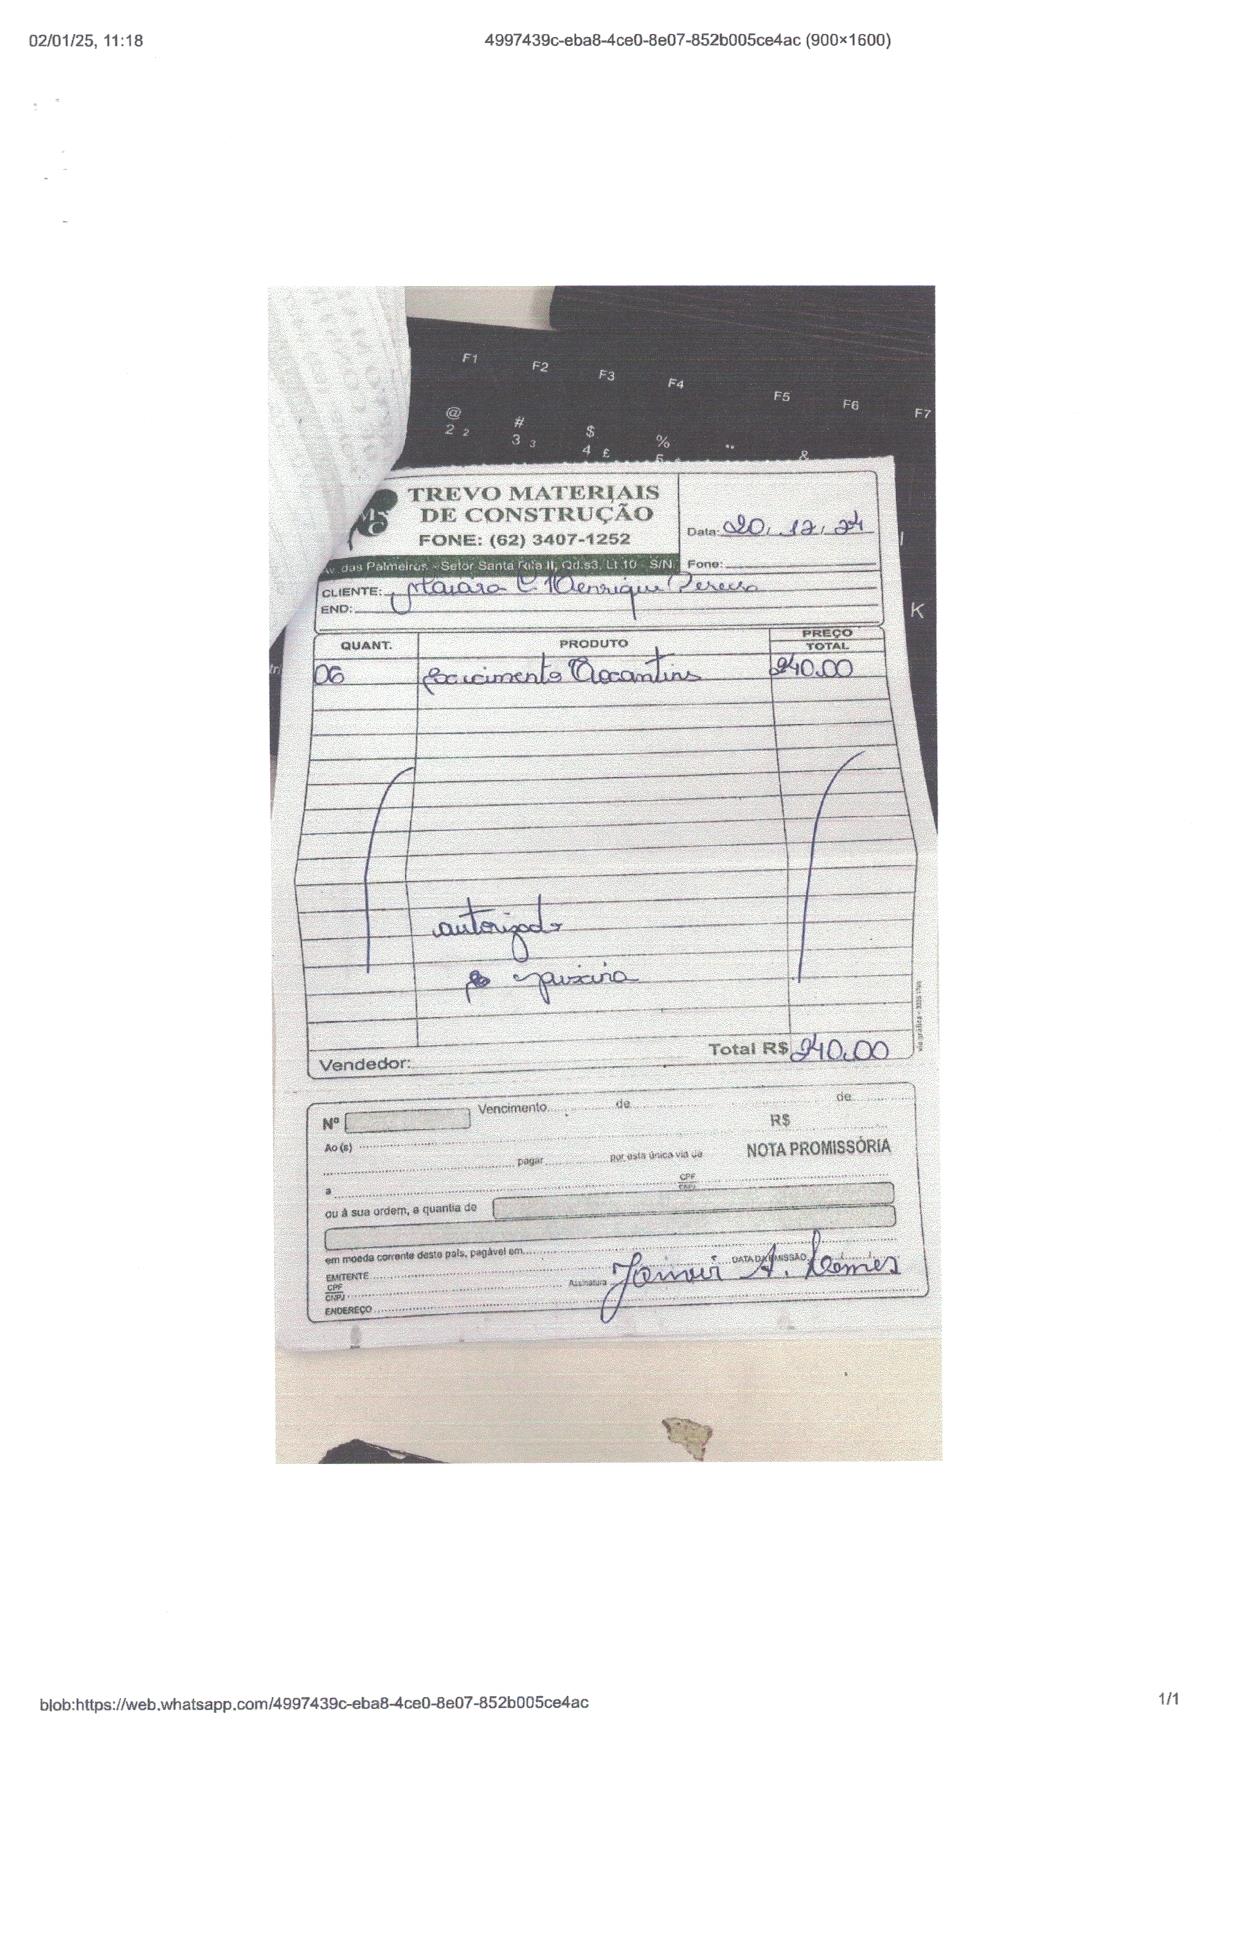 02/01/25, 11:18 4997439c-eba8-4ce0-8e07-852b005ce4ac (900×1600)
F1 F2 F3 F4 F5 F6 F7
@ # $ % &
2 2 3 3 4 £
K
TREVO MATERIAIS
DE CONSTRUÇÃO
FONE: (62) 3407-1252
Data: 20.12.24
das Palmeiras - Setor Santa Rita II, Qd.s3, Lt 10 - S/N. Fone:
CLIENTE: Henrique Pereira
END:
QUANT. PRODUTO PREÇO TOTAL
06 cimento Tocantins 240.00
autorizado
Total R$ 240.00
Vendedor:
Nº Vencimento de de
R$
Ao(s)
NOTA PROMISSÓRIA
pagar por esta única via de
a CPF CNPJ
ou à sua ordem, a quantia de
em moeda corrente deste país, pagável em
DATA DA EMISSÃO
EMITENTE
CPF CNPJ Assinatura A. Lemes
ENDEREÇO
blob:https://web.whatsapp.com/4997439c-eba8-4ce0-8e07-852b005ce4ac 1/1